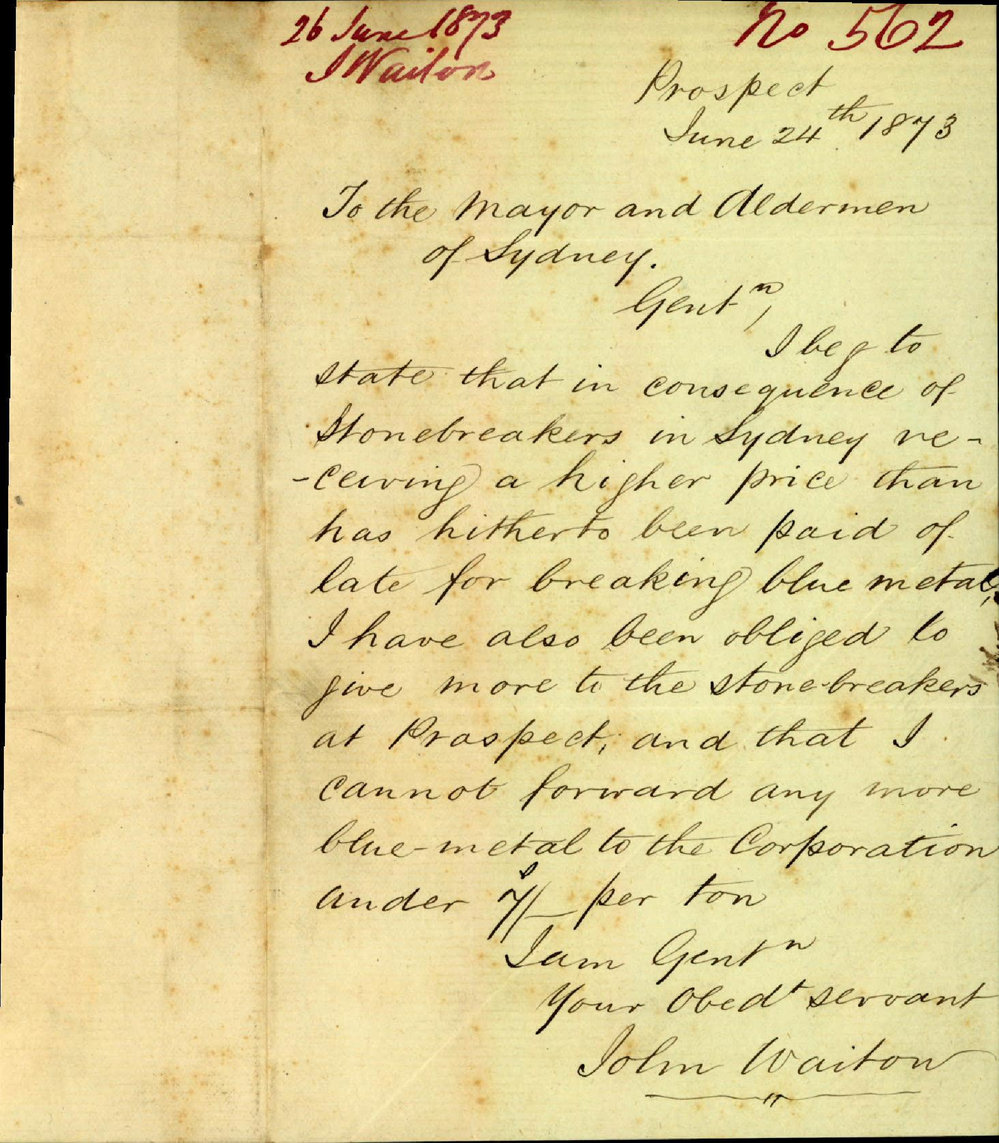 26 June 1873
No 562
J Waiton
Prospect
June 24th 1873
To the Mayor and Aldermen
of Sydney.
Gentn,
I beg to
state that in consequence of
Stonebreakers in Sydney re-
-ceiving a higher price than
has hitherto been paid of
late for breaking blue metal,
I have also been obliged to
give more to the stone-breakers
at Prospect, and that I
cannot forward any more
blue-metal to the Corporation
under 7s/- per ton
I am Gentn
Your Obedt servant
John Waiton